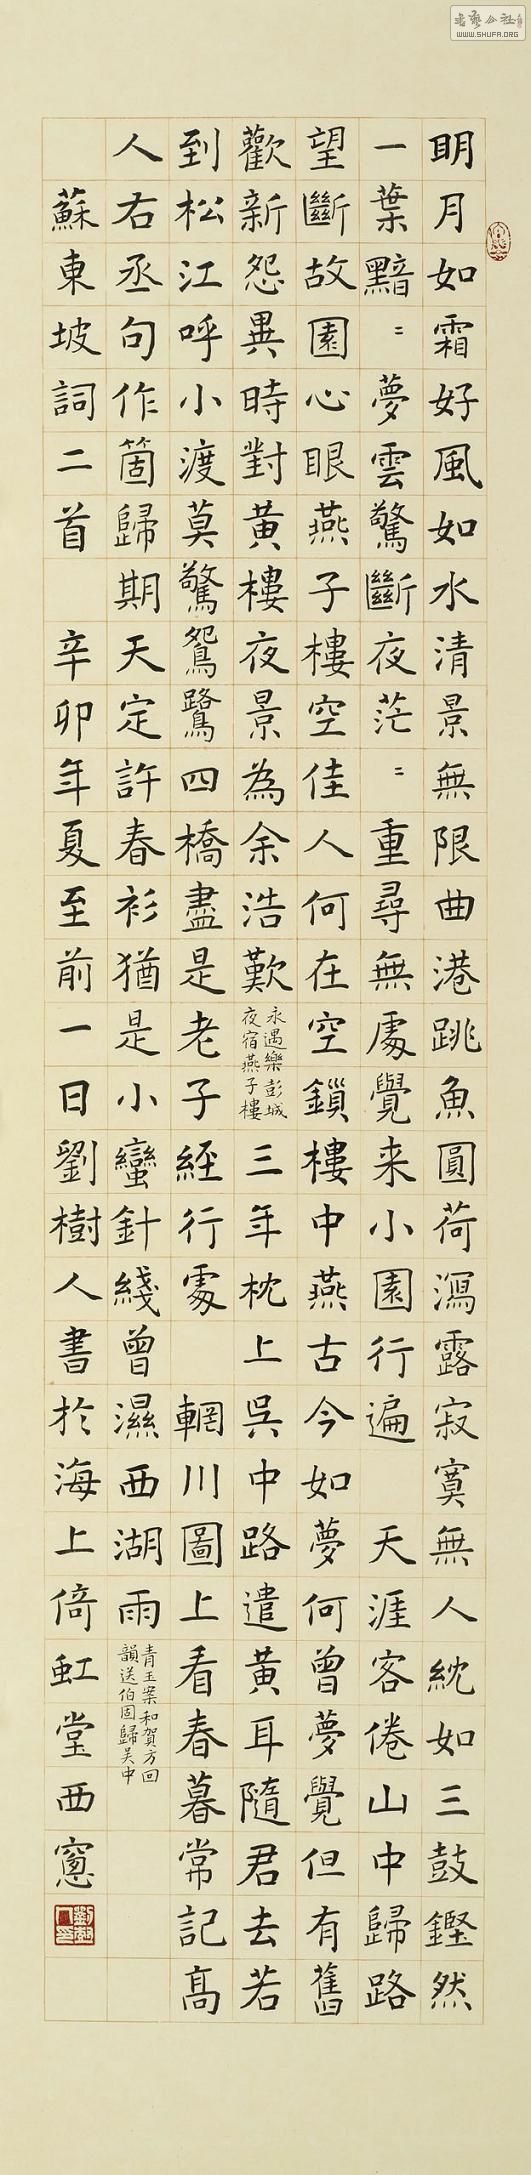 明月如霜好風如水清景無限曲港跳魚圓荷瀉露寂寞無人紞如三鼓鏗然
一葉黯〻夢雲驚斷夜茫〻重尋無處覺来小園行遍 天涯客倦山中歸路
望斷故園心眼燕子樓空佳人何在空鎖樓中燕古今如夢何曾夢覺但有舊
歡新怨異時對黃樓夜景為余浩歎
永遇樂彭城
夜宿燕子樓
三年枕上吳中路遣黃耳隨君去若
到松江呼小渡莫驚鴛鷺四橋盡是老子經行處 輞川圖上看春暮常記高
人右丞句作箇歸期天定許春衫猶是小蠻針綫曾濕西湖雨
青玉案和賀方回
韻送伯固歸吳中
蘇東坡詞二首 辛卯年夏至前一日劉樹人書於海上倚虹堂西窗
書藝公社
WWW.SHUFA.ORG